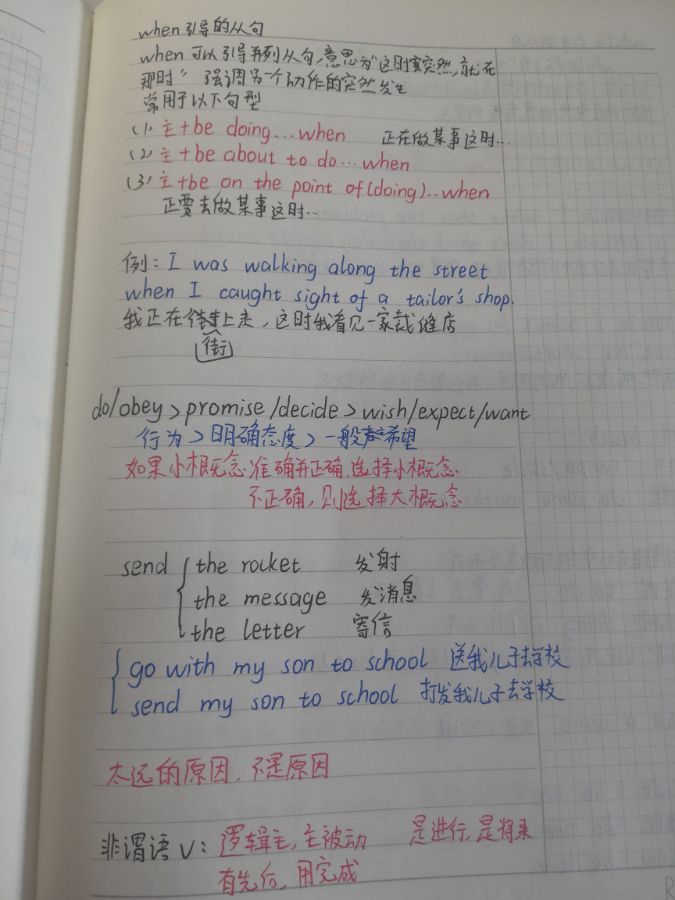 when引导的从句
when可以引导并列从句,意思为"这时突然,就在
那时" 强调另一个动作的突然发生
常用于以下句型
(1) 主+be doing...when 正在做某事这时...
(2) 主+be about to do...when
(3) 主+be on the point of(doing)...when
正要去做某事这时...
例: I was walking along the street
when I caught sight of a tailor's shop.
我正在街上走,这时我看见一家裁缝店
街
do/obey>promise/decide>wish/expect/want
行为>明确态度>一般希望
如果小概念准确并正确,选择小概念
不正确,则选择大概念
send { the rocket 发射
the message 发消息
the letter 寄信
{ go with my son to school 送我儿子去学校
send my son to school 打发我儿子去学校
太远的原因,不是原因
非谓语V: 逻辑主,主被动 是进行,是将来
有先后,用完成